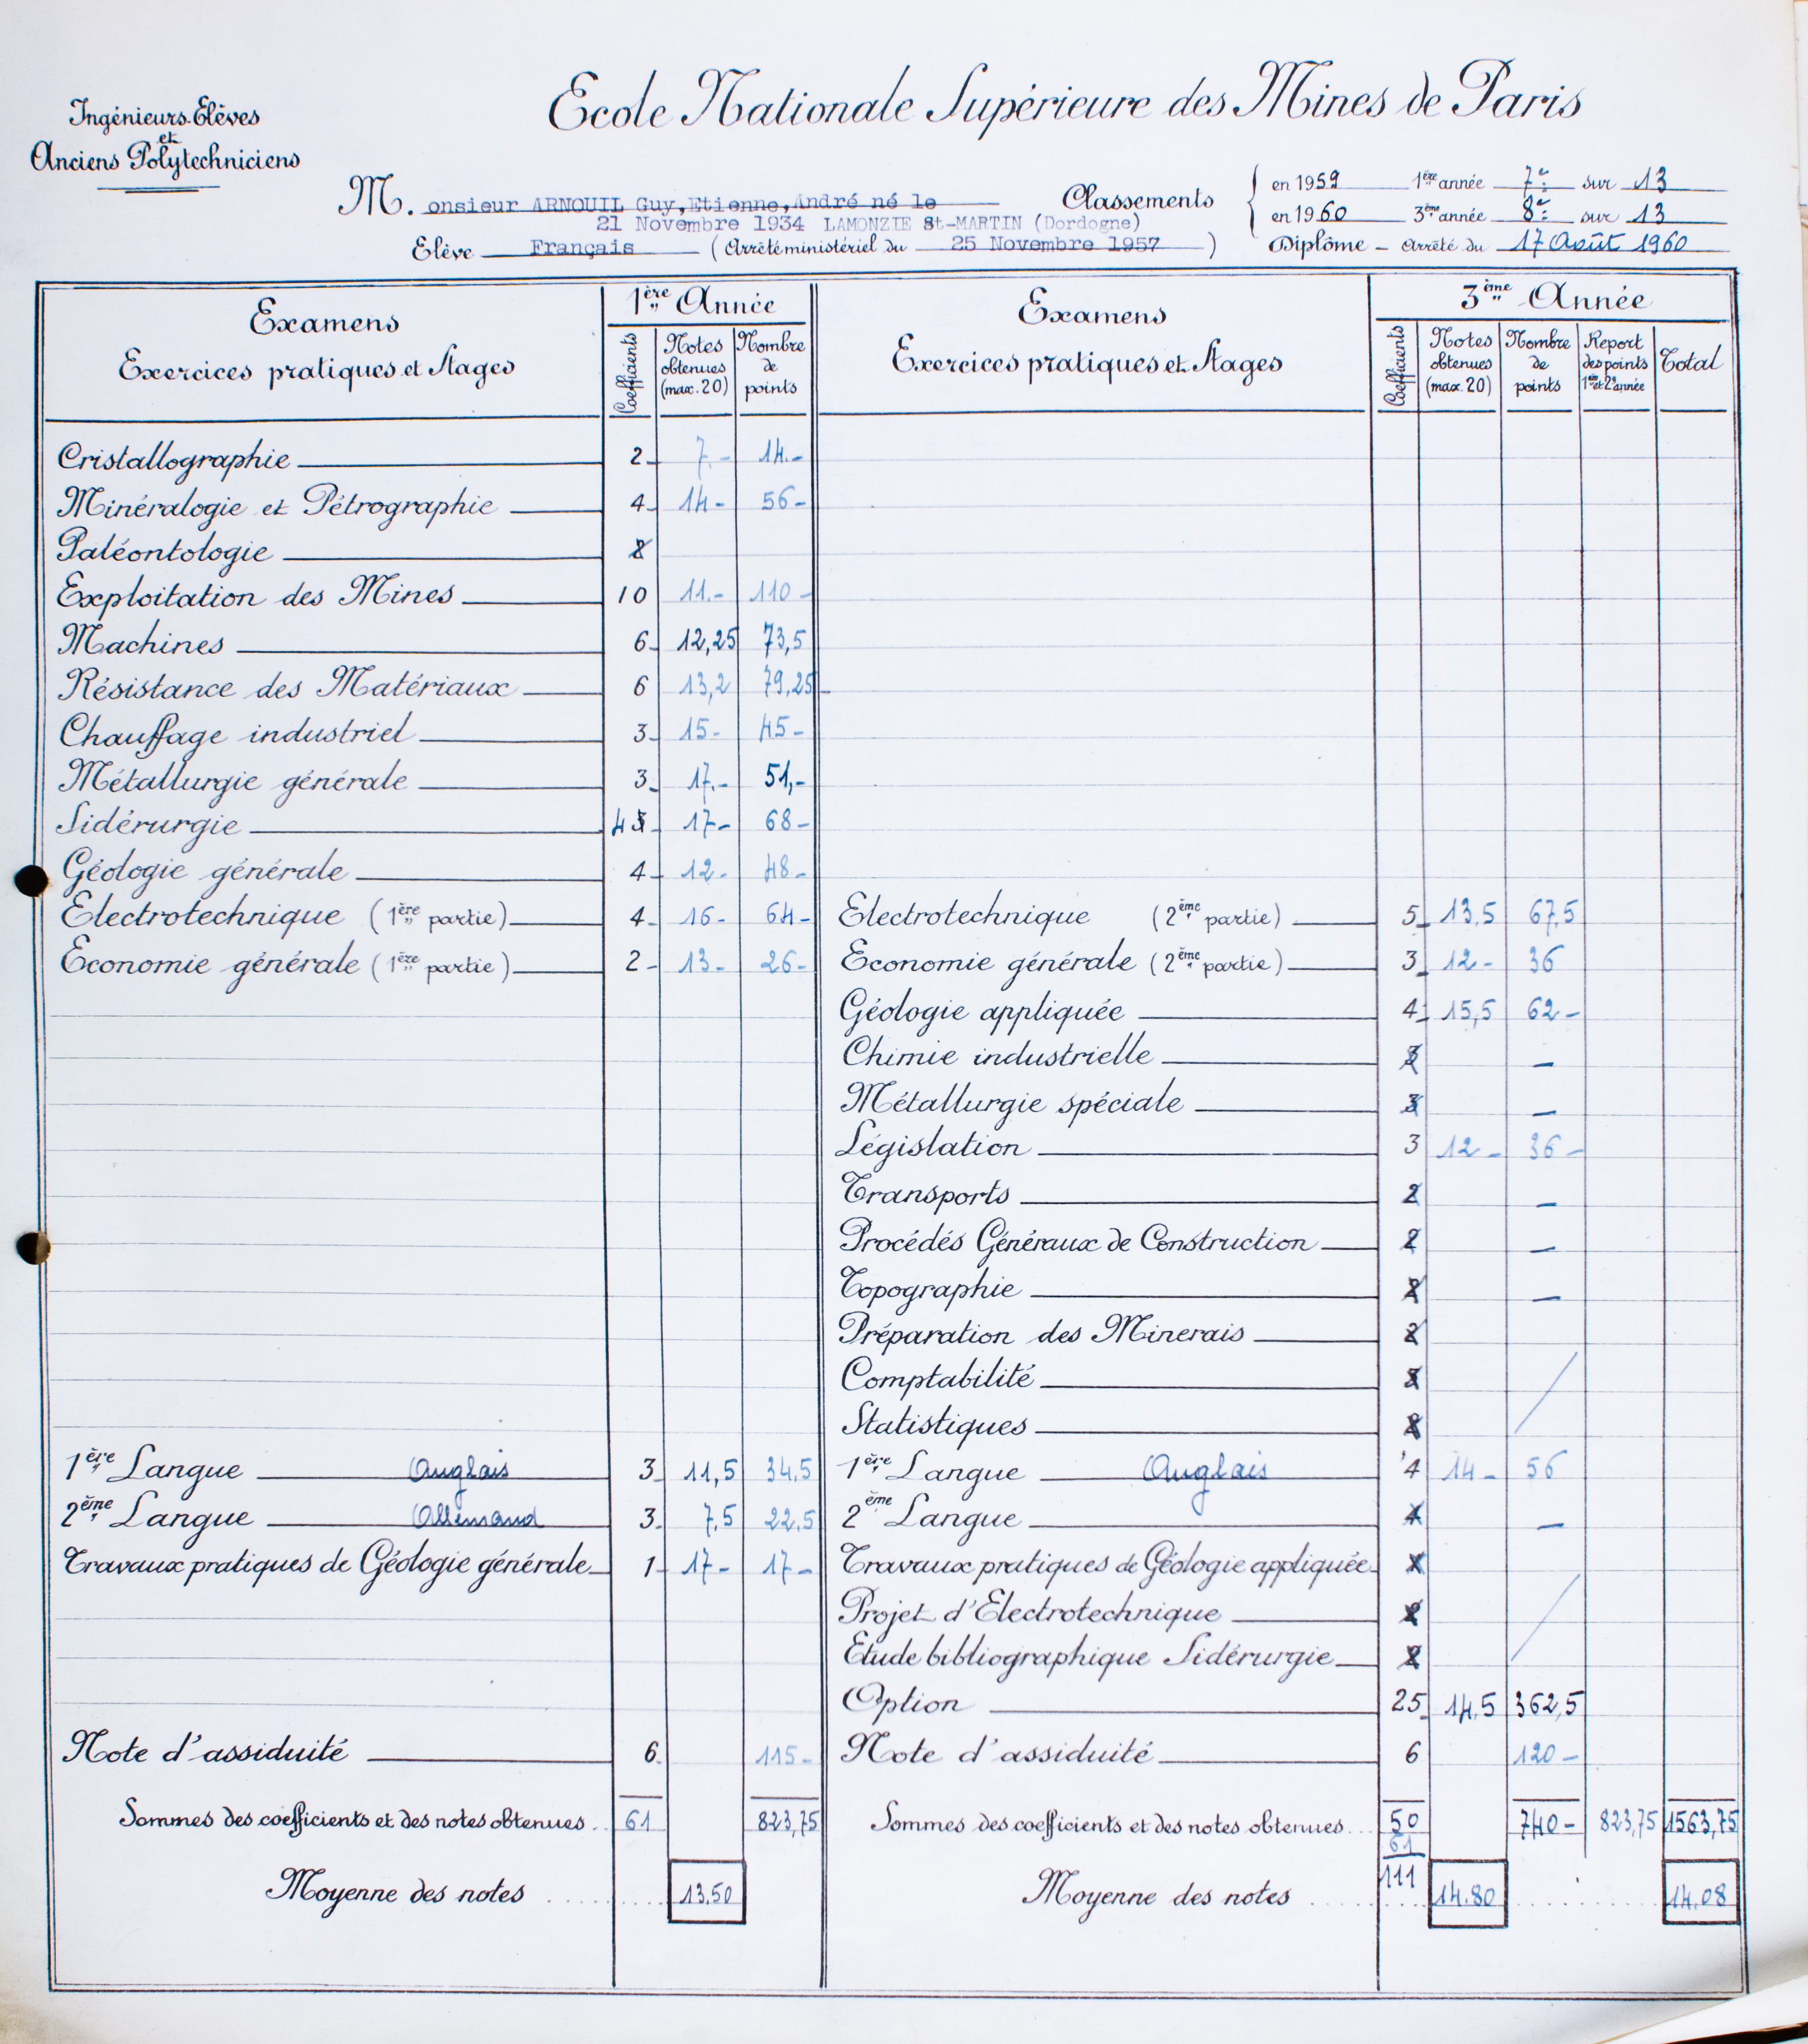 Ecole Nationale Supérieure des Mines de Paris
Ingénieurs-Elèves
et
Anciens Polytechniciens
M. onsieur ARNOUIL Guy,Etienne,André né le
21 Novembre 1934 LAMONZIE St-MARTIN (Dordogne)
Elève Français (Arrêté ministériel du 25 Novembre 1957)
Classements
en 1959 1ère année 7e sur 13
en 1960 3ème année 8e sur 13
Diplôme - Arrêté du 17 Août 1960
Examens
Exercices pratiques et Stages
1ère Année
Coefficients
Notes obtenues (max. 20)
Nombre de points
Examens
Exercices pratiques et Stages
3ème Année
Coefficients
Notes obtenues (max. 20)
Nombre de points
Report des points 1ère et 2e année
Total
Cristallographie 2 7.- 14.-
Minéralogie et Pétrographie 4 14- 56-
Paléontologie 2
Exploitation des Mines 10 11.- 110-
Machines 6 12,25 73,5
Résistance des Matériaux 6 13,2 79,25
Chauffage industriel 3 15- 45-
Métallurgie générale 3 17.- 51,-
Sidérurgie 4 3 17- 68-
Géologie générale 4 12- 48-
Electrotechnique (1ère partie) 4 16- 64-
Economie générale (1ère partie) 2 13- 26-
1ère Langue Anglais 3 11,5 34,5
2ème Langue Allemand 3 7,5 22,5
Travaux pratiques de Géologie générale 1 17- 17-
Note d'assiduité 6 115-
Sommes des coefficients et des notes obtenues 61 823,75
Moyenne des notes 13.50
Electrotechnique (2ème partie) 5 13,5 67,5
Economie générale (2ème partie) 3 12- 36
Géologie appliquée 4 15,5 62-
Chimie industrielle 3 —
Métallurgie spéciale 3 —
Législation 3 12- 36-
Transports 2 —
Procédés Généraux de Construction 2 —
Topographie 2 —
Préparation des Minerais 2
Comptabilité
Statistiques
1ère Langue Anglais 4 14- 56
2ème Langue 4 —
Travaux pratiques de Géologie appliquée
Projet d'Electrotechnique 2
Etude bibliographique Sidérurgie 2
Option 25 14,5 362,5
Note d'assiduité 6 120-
Sommes des coefficients et des notes obtenues 50 740- 823,75 1563,75
61
111
Moyenne des notes 14.80 14.08